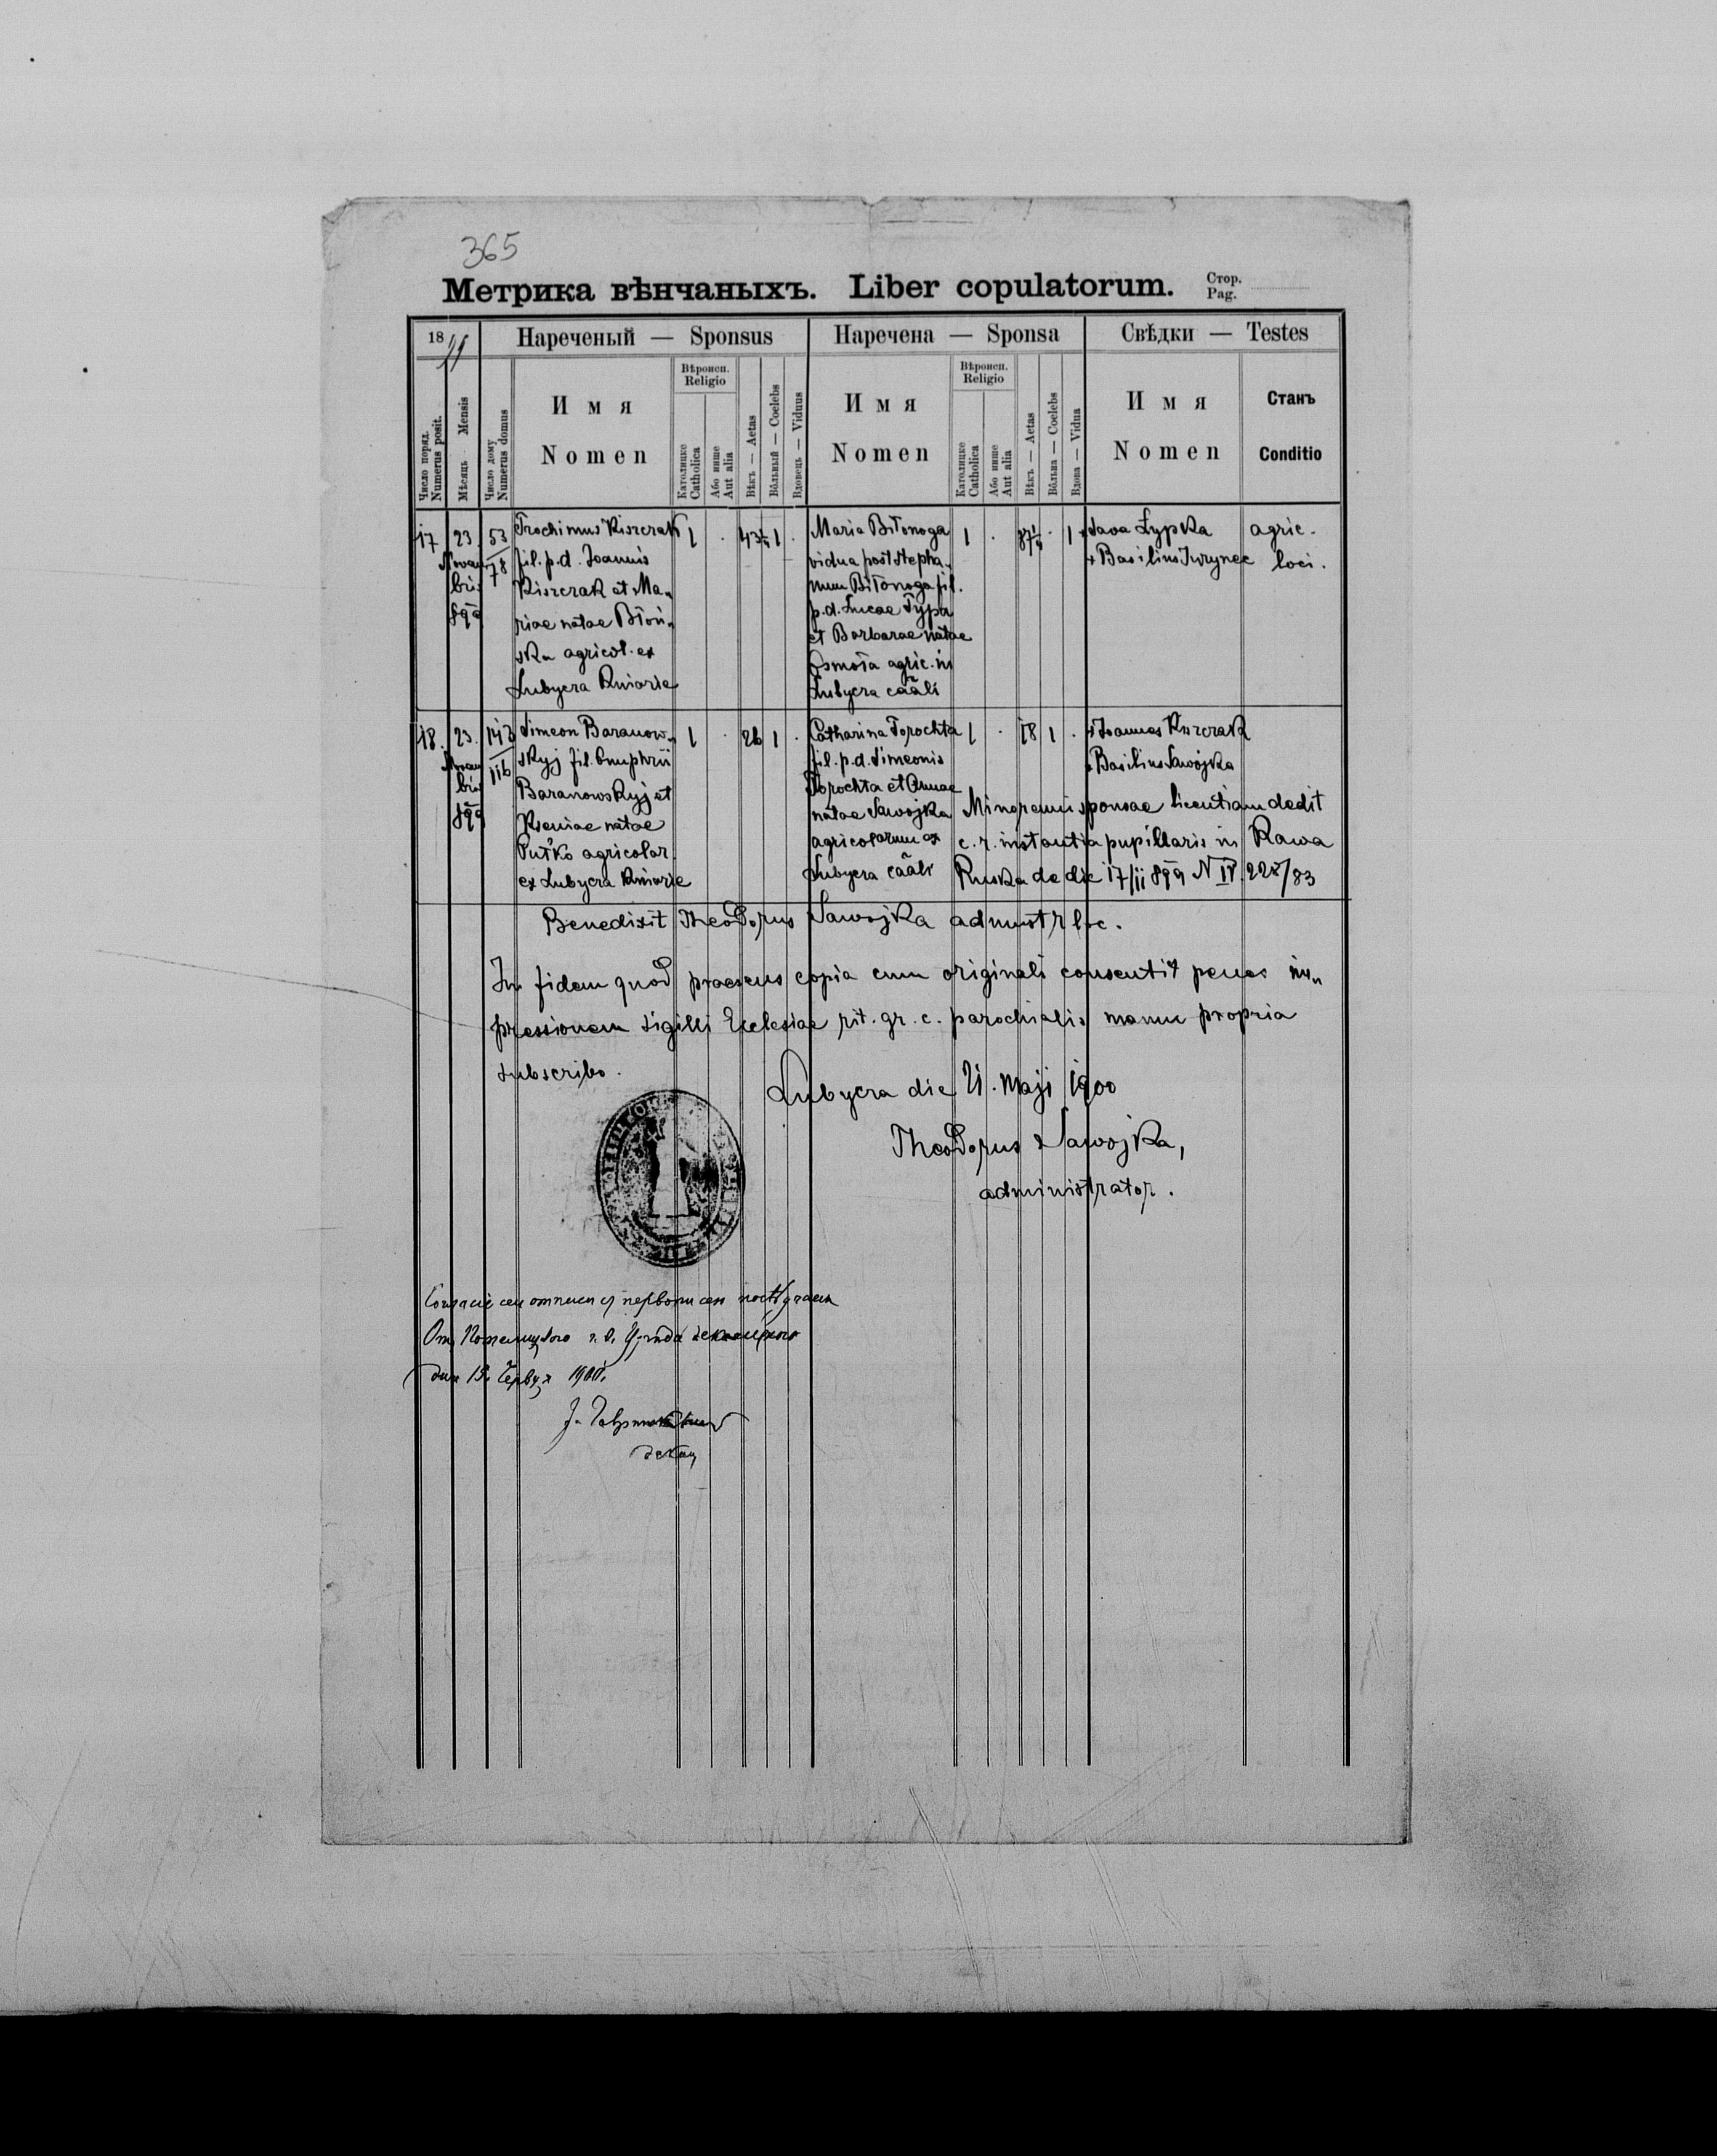 365
Метрика вѣнчаныхъ. Liber copulatorum. Стор. Pag.
1899 Нареченый — Sponsus Наречена — Sponsa Свѣдки — Testes
Число поряд. Numerus posit.
Мѣсяць Mensis
Число дому Numerus domus
Имя Nomen
Вѣроисп. Religio
Католицке Catholica
Або инше Aut alia
Вѣкъ — Aetas
Вôльный — Coelebs
Вдовець — Viduus
Имя Nomen
Вѣроисп. Religio
Католицке Catholica
Або инше Aut alia
Вѣкъ — Aetas
Вôльна — Coelebs
Вдова — Vidua
Имя Nomen
Станъ Conditio
17 23 Novembris 899 53/78
Trochimus Kiszczak
fil. p. d. Joannis
Kiszczak et Ma„
riae natae Błoń„
ska agricol. ex
Lubycza Kniazie
1 . 43¼ 1 .
Maria Biłonoga
vidua post Stepha„
num Biłonoga fil.
p. d. Lucae Typa
et Barbarae natae
agric. in
Lubycza
1 . 37¼ . 1
+ Sava Łypka agric.
+ Basilius Jurynec loci.
18. 23. Novembris 899 143/116
Simeon Baranow„
skyj fil. Onuphrii
Baranowskyj et
Kseniae natae
Puťko agricolar.
ex Lubycza Kniazie
1 . 26 1 .
Catharina Torochta
fil. p. d. Simeonis
Torochta et Annae
natae Sawojka
agricolarum ex
Lubycza
1 . 18 1 .
+ Joannes Kiszczak
+ Basilius Sawojka
Minorenni sponsae licentiam dedit
c. r. instantia pupillaris in Rawa
Ruska de die 17/11 899 N IV. 228/83
Benedixit Theodorus Sawojka administr loc.
In fidem quod praesens copia cum originali consentit penes im„
pressionem sigilli Ecclesiae rit. gr. c. parochialis manu propria
subscribo.
Lubycza die 21. Maji 1900
Theodorus Sawojka,
administrator.
дня 15. Червця 1900.
декан